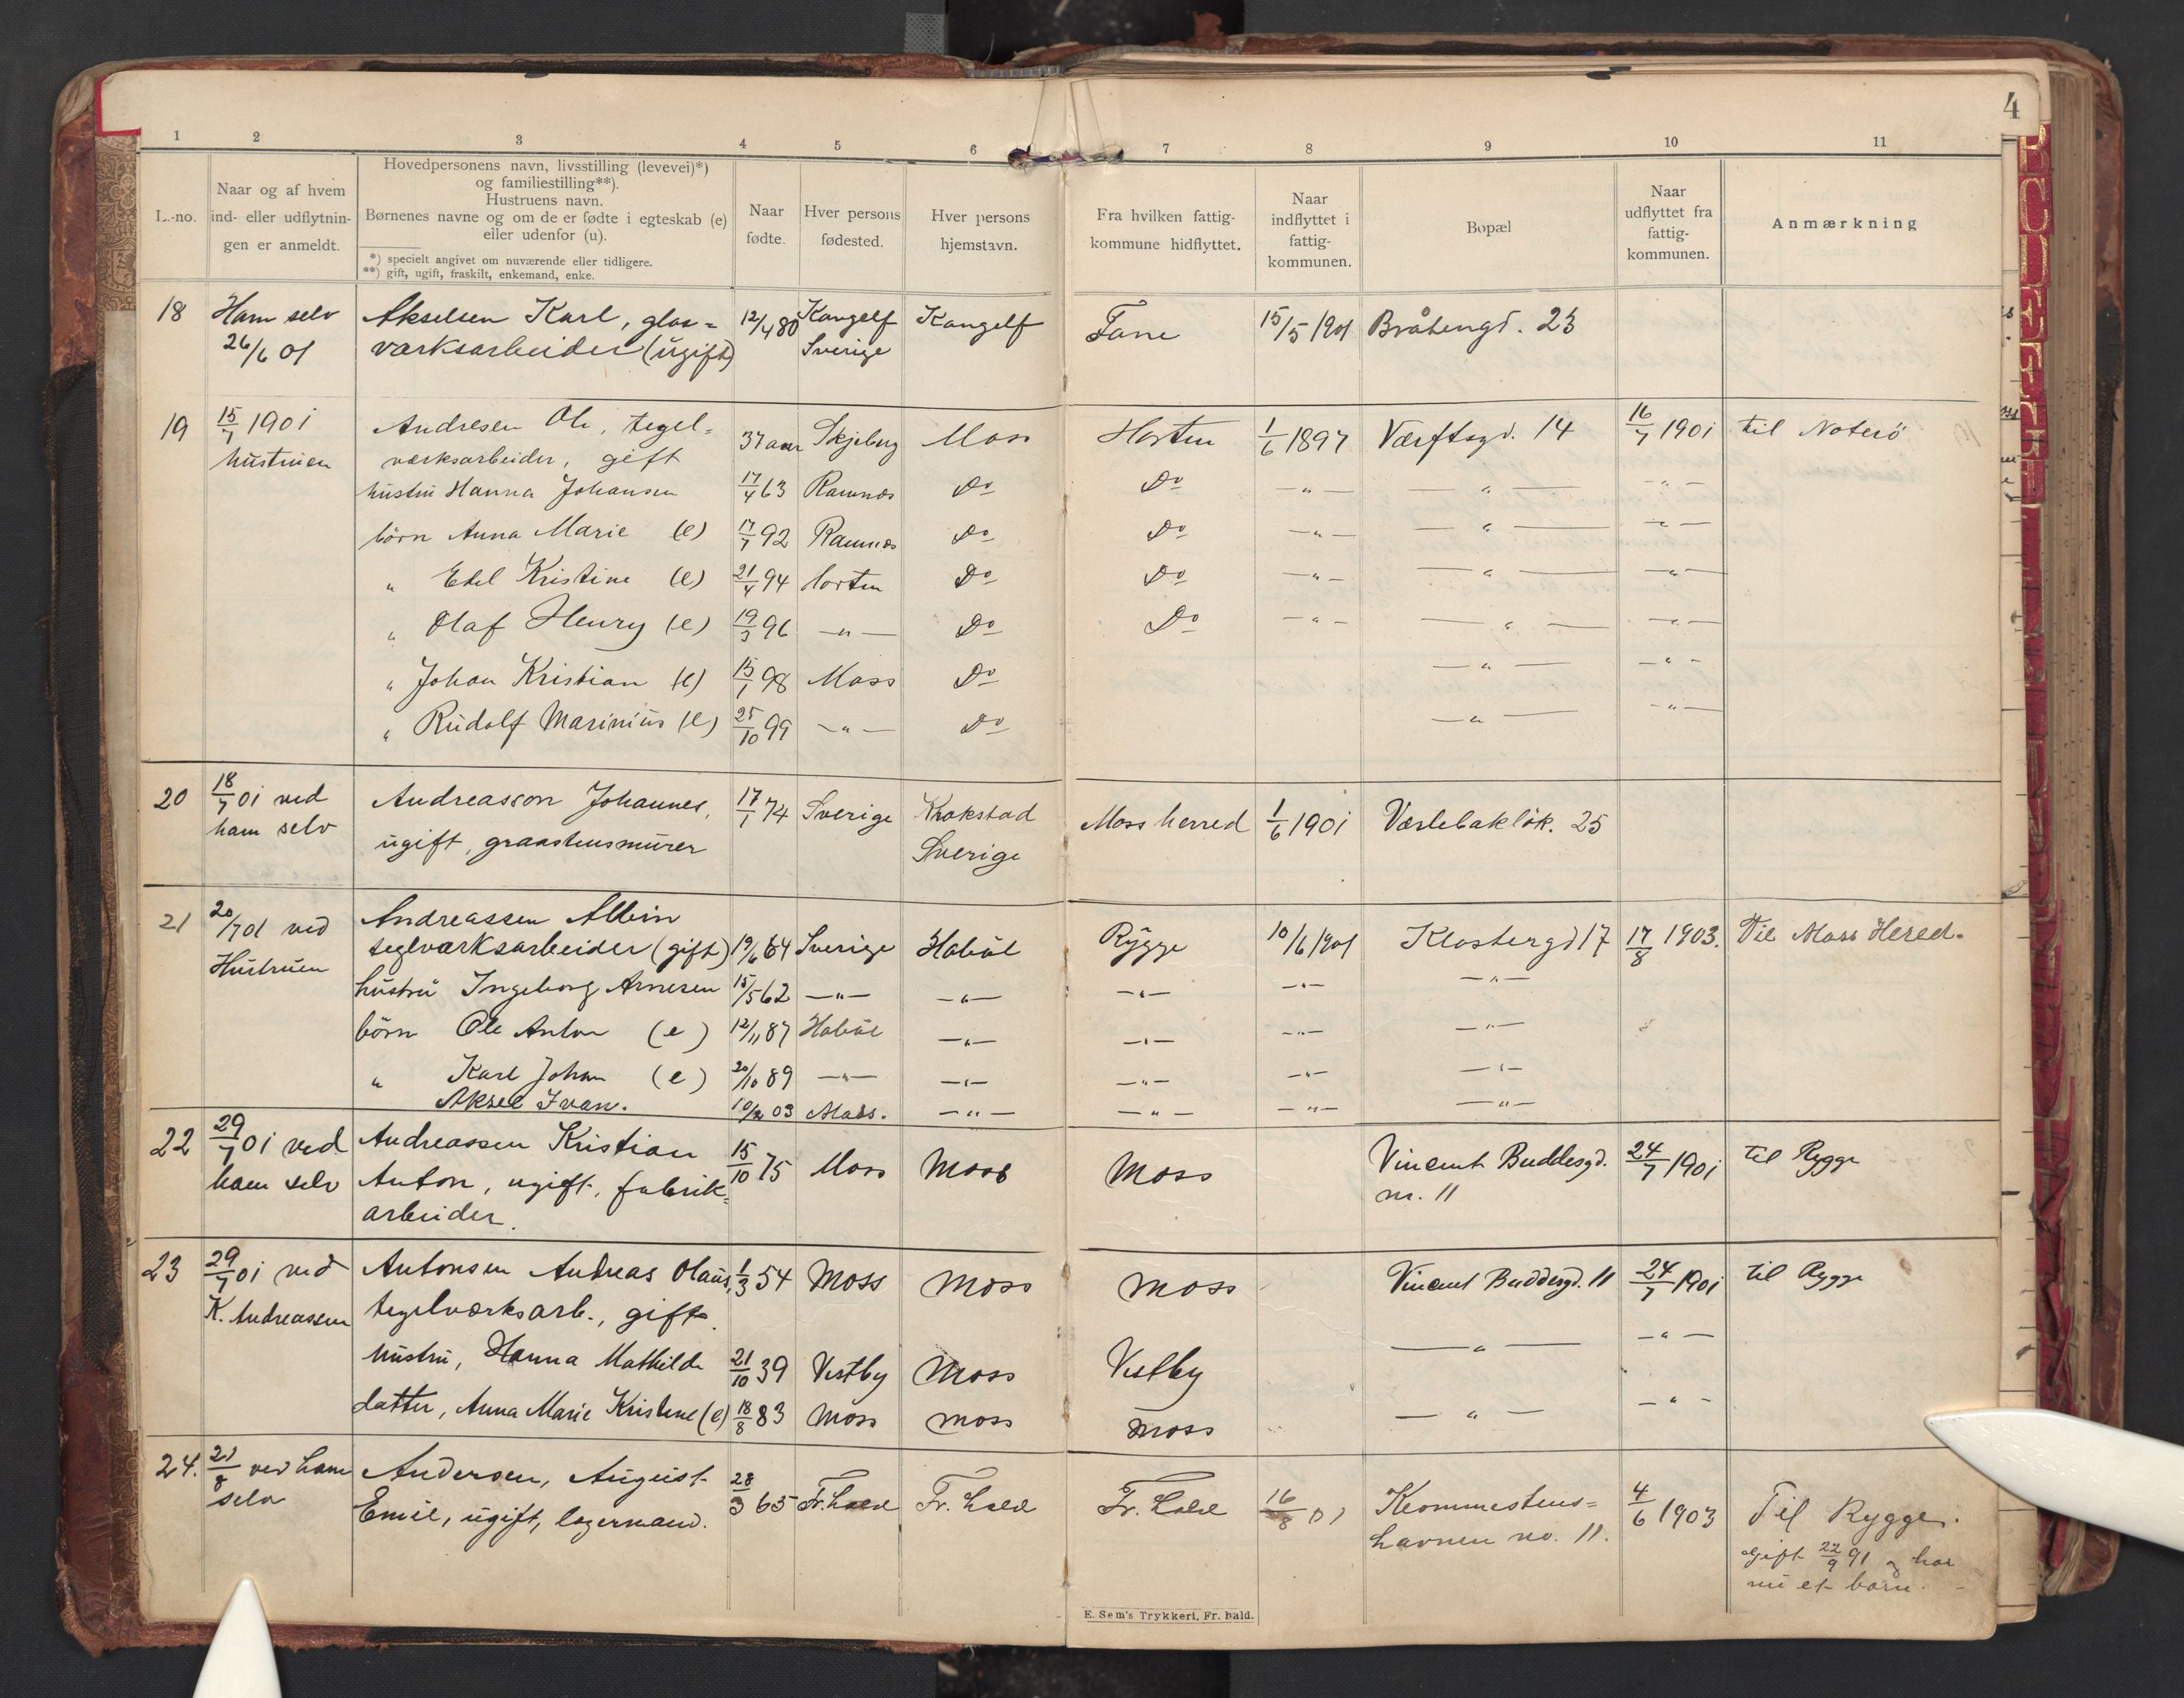 4
1 2 3 4 5 6 7 8 9 10 11
L.-no.
Naar og af hvem
ind- eller udflytnin-
gen er anmeldt.
Hovedpersonens navn, livsstilling (levevei)*)
og familiestilling**).
Hustruens navn.
Børnenes navne og om de er fødte i egteskab (e)
eller udenfor (u).
*) specielt angivet om nuværende eller tidligere.
**) gift, ugift, fraskilt, enkemand, enke.
Naar
fødte.
Hver persons
fødested.
Hver persons
hjemstavn.
Fra hvilken fattig-
kommune hidflyttet.
Naar
indflyttet i
fattig-
kommunen.
Bopæl
Naar
udflyttet fra
fattig-
kommunen.
Anmærkning
18 Ham selv Akselsen Karl, glas= 12/4 80 Kongelf Kongelf Fane 15/5 1901 Bråtengd. 23
26/6 01 værksarbeider (ugift) Sverige
19 15/7 1901 Andresen Ole, tegel= 37 aar Skjeberg Moss Horten 1/6 1897 Værftsgd. 14 16/7 1901 til Noterö
hustruen værksarbeider, gift
hustru Hanna Johansen 17/4 63 Ramnæs Do Do -"- -"- -"-
börn Anna Marie (e) 17/7 92 Ramnæs Do Do -"- -"- -"-
" Edel Kristine (e) 21/4 94 Horten Do Do -"- -"- -"-
" Olaf Henry (e) 19/3 96 -"- Do Do -"- -"- -"-
" Johan Kristian (e) 15/1 98 Moss Do -"- -"-
" Rudolf Marinius (e) 25/10 99 -"- Do -"- -"-
20 18/7 01 ved Andreasson Johannes, 17/1 74 Sverige Krokstad Moss herred 1/6 1901 Værlebakløk. 25
ham selv ugift, graastensmurer Sverige
21 20/7 01 ved Andreassen Albin
Hustruen teglværksarbeider (gift) 19/6 64 Sverige Haböl Rygge 10/6 1901 Klostergd 17 17/8 1903. Til Moss Hered.
hustru Ingeborg Arnesen 15/5 62 -"- -"- -"- -"- -"-
börn Ole Anton (e) 12/11 87 Haböl -"- -"- -"- -"-
" Karl Johan (e) 20/10 89 -"- -"- -"- -"- -"-
Aksel Ivan. 10/2 03 Moss. -"- -"- -"- -"-
22 29/7 01 ved Andreassen Kristian 15/10 75 Moss Moss Moss Vincent Buddesgd. 24/7 1901 til Rygge
ham selv Anton, ugift, fabrik= nr. 11
arbeider.
23 29/7 01 ved Antonsen Andreas Olaus, 1/3 54 Moss Moss Moss Vincent Buddesgd. 11 24/7 1901 til Rygge
K. Andreassen tegelværksarb., gift.
hustru, Hanna Mathilde 21/10 39 Vestby Moss Vestby -"- -"-
datter, Anna Marie Kristine (e) 18/8 83 Moss Moss Moss -"- -"-
24. 21/8 ved ham Andersen, August 28/3 65 Fr.hald Fr. hald Fr. hald 16/8 01 Krommestens= 4/6 1903 Til Rygge.
selv Emil, ugift, lagermand. havnen no. 11. Gift 22/9 91 og har
nu et barn.
E. Sem's Trykkeri, Fr. hald.